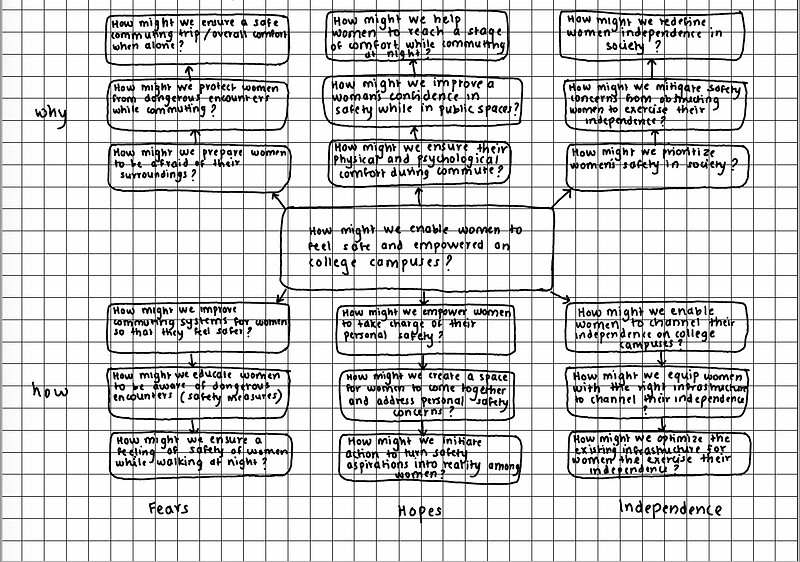 How might we ensure a safe
commuting trip/overall comfort
when alone?
How might we help
women to reach a stage
of comfort while commuting
at night?
How might we redefine
women independence in
society?
why
How might we protect women
from dangerous encounters
while commuting?
How might we improve a
woman's confidence in
safety while in public spaces?
How might we mitigate safety
concerns from obstructing
women to exercise their
independence?
How might we prepare women
to be afraid of their
surroundings?
How might we ensure their
physical and psychological
comfort during commute?
How might we prioritize
women's safety in society?
How might we enable women to
feel safe and empowered on
college campuses?
How might we improve
commuting systems for women
so that they feel safer?
How might we empower women
to take charge of their
personal safety?
How might we enable
women to channel their
independence on college
campuses?
how
How might we educate women
to be aware of dangerous
encounters (safety measures)
How might we create a space
for women to come together
and address personal safety
concerns?
How might we equip women
with the right infrastructure
to channel their independence
?
How might we ensure a
feeling of safety of women
while walking at night?
How might we initiate
action to turn safety
aspirations into reality among
women?
How might we optimize the
existing infrastructure for
women the exercise their
independence?
Fears
Hopes
Independence